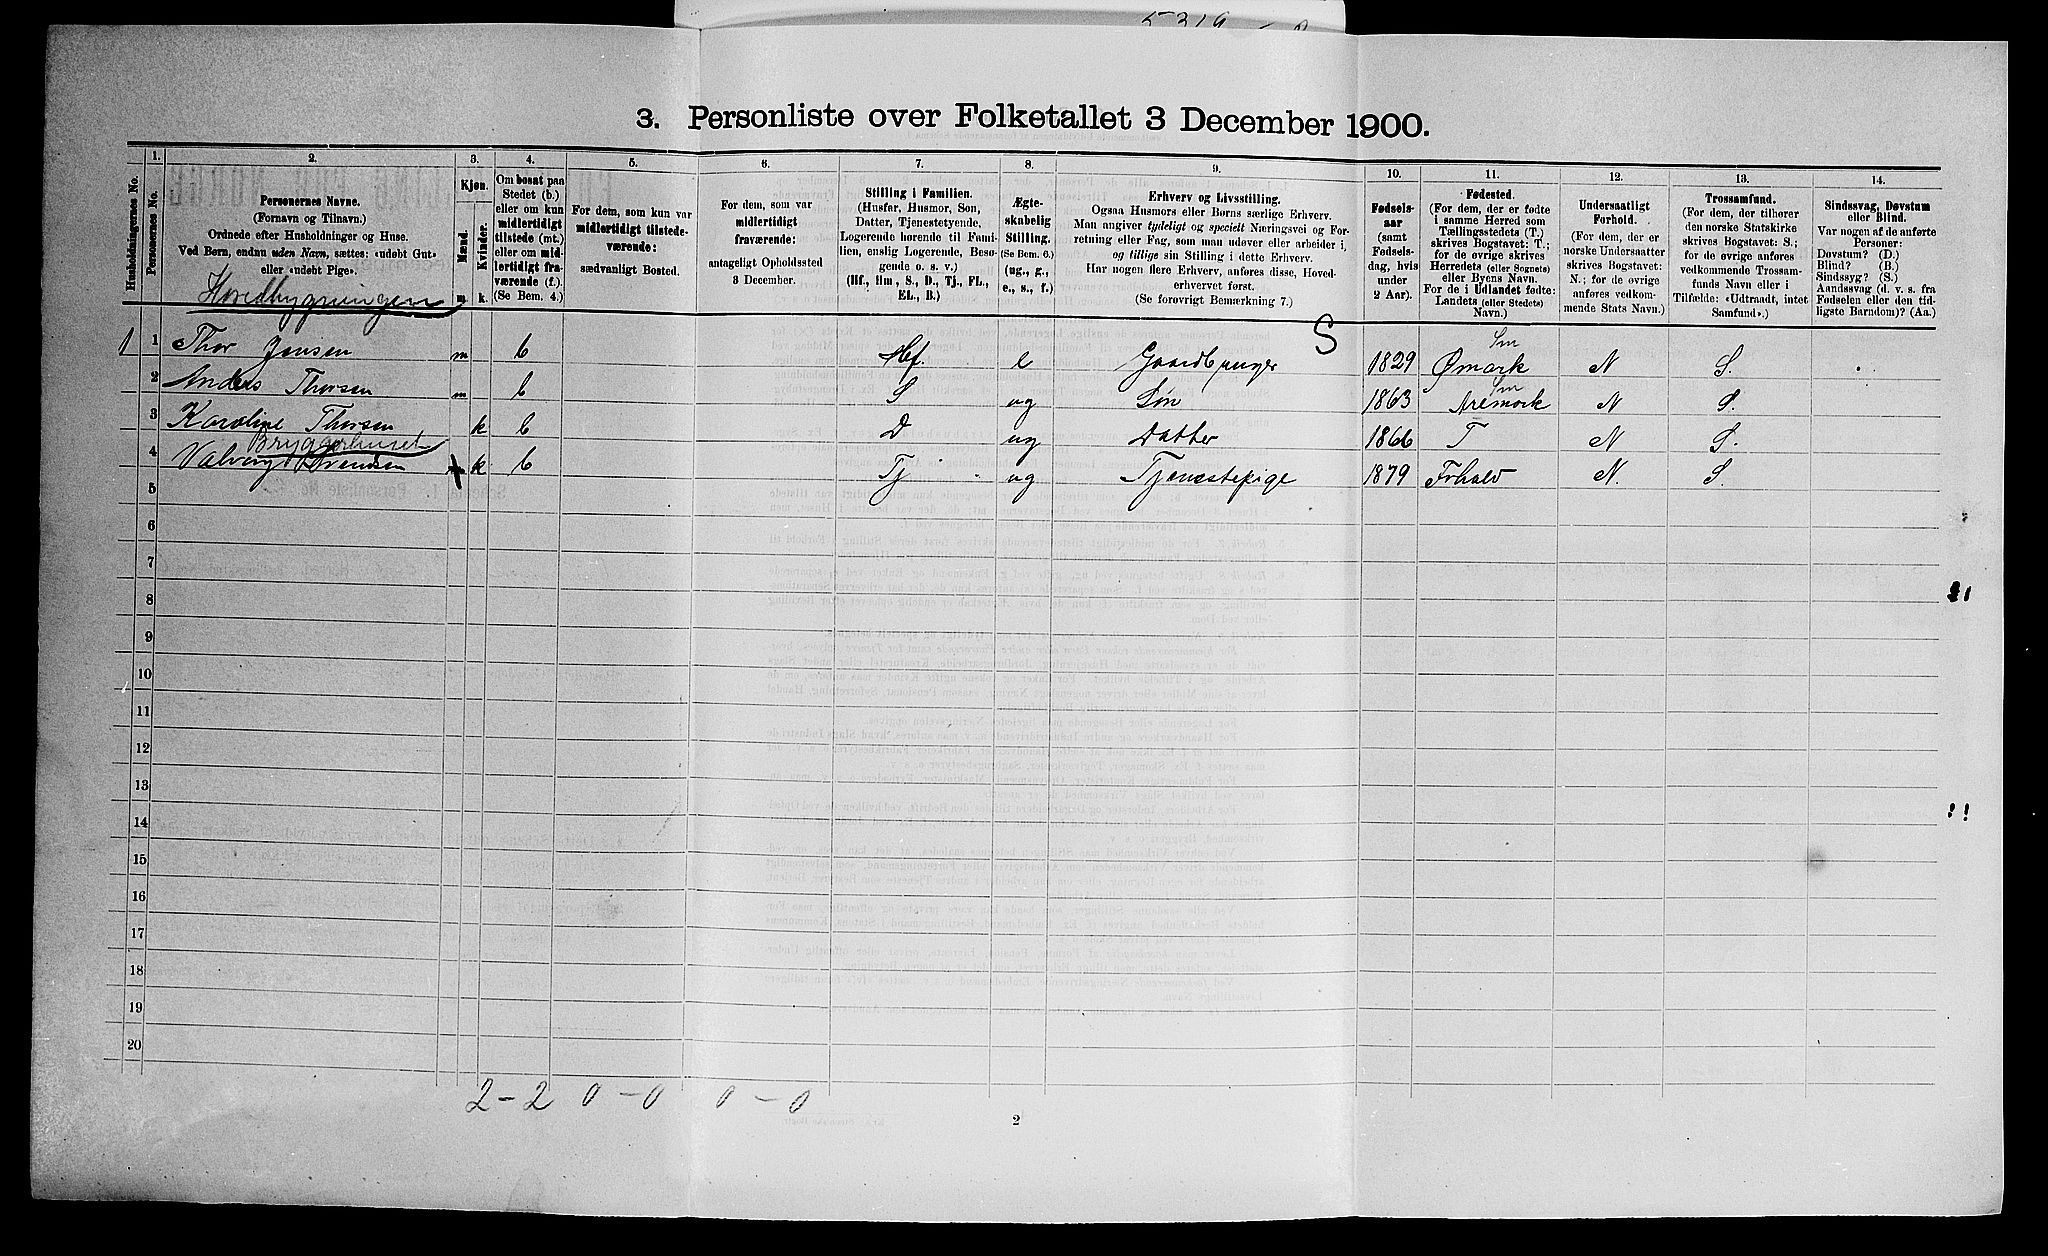 3. Personliste over Folketallet 3 December 1900.
Husholdningernes No.
1.
Personernes No.
2.
Personernes Navne.
(Fornavn og Tilnavn.)
Ordnede efter Husholdninger og Huse.
Ved Børn, endnu uden Navn, sættes: «udøbt Gut»
eller «udøbt Pige».
Hovedbygningen
3.
Kjøn.
Mænd.
Kvinder.
m k.
4.
Om bosat paa
Stedet (b.)
eller om kun
midlertidigt
tilstede (mt.)
eller om mid-
lertidigt fra-
værende (f.).
(Se Bem. 4.)
5.
For dem, som kun var
midlertidigt tilstede-
værende:
sædvanligt Bosted.
6.
For dem, som var
midlertidigt
fraværende:
antageligt Opholdssted
3 December.
7.
Stilling i Familien.
(Husfar, Husmor, Søn,
Datter, Tjenestetyende,
Logerende hørende til Fami-
lien, enslig Logerende, Besø-
gende o. s. v.)
(Hf., Hm., S., D., Tj., FL.,
EL., B.)
8.
Ægte-
skabelig
Stilling.
(Se Bem. 6.)
(ug., g.,
e., s., f.)
9.
Erhverv og Livsstilling.
Ogsaa Husmors eller Børns særlige Erhverv.
Man angiver tydeligt og specielt Næringsvei og For-
retning eller Fag, som man udøver eller arbeider i,
og tillige sin Stilling i dette Erhverv.
Har nogen flere Erhverv, anføres disse, Hoved-
erhvervet først.
(Se forøvrigt Bemærkning 7.)
S
10.
Fødsels-
aar
(samt
Fødsels-
dag, hvis
under
2 Aar).
11.
Fødested.
(For dem, der er fødte
i samme Herred som
Tællingsstedets (T.)
skrives Bogstavet: T.;
for de øvrige skrives
Herredets (eller Sognets)
eller Byens Navn.
For de i Udlandet fødte:
Landets (eller Stedets)
Navn.)
12.
Undersaatligt
Forhold.
(For dem, der er
norske Undersaatter
skrives Bogstavet:
N.; for de øvrige
anføres vedkom-
mende Stats Navn.)
13.
Trossamfund.
(For dem, der tilhører
den norske Statskirke
skrives Bogstavet: S.;
for de øvrige anføres
vedkommende Trossam-
funds Navn eller i
Tilfælde: «Udtraadt, intet
Samfund».)
14.
Sindssvag, Døvstum
eller Blind.
Var nogen af de anførte
Personer:
Døvstum? (D.)
Blind? (B.)
Sindssyg? (S.)
Aandssvag (d. v. s. fra
Fødselen eller den tid-
ligste Barndom)? (Aa.)
Sm
1 1 Thor Jensen m b Hf. e Gaardbruger 1829 Ømark N S.
Sm
2 Anders Thorsen m b S ug Søn 1863 Aremark N S.
3 Karoline Thorsen k b D ug Datter 1866 T N S.
Bryggerhuset
4 Valborg Svendsen k b Tj ug Tjenestepige 1879 N. S.
5
6
7
8
9
10
11
12
13
14
15
16
17
18
19
20
2 - 2 0 - 0 0 - 0
2